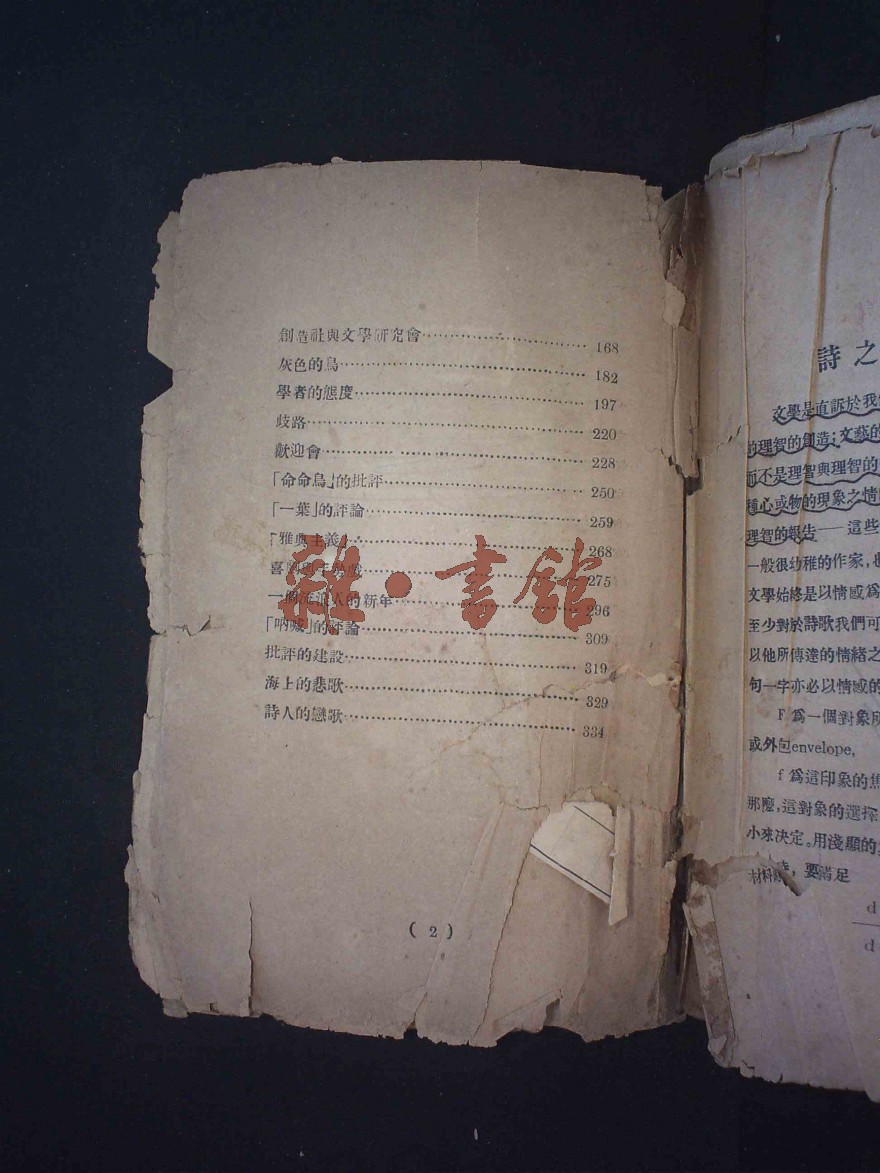 創造社與文學研究會 168
灰色的鳥 182
學者的態度 197
歧路 220
歡迎會 228
「命命鳥」的批評 250
「一葉」的評論 259
「雅典主義」 268
喜劇與手勢戲 275
一個流浪人的新年 296
「吶喊」的評論 309
批評的建設 319
海上的悲歌 329
詩人的戀歌 334
( 2 )
雜·書館
詩之
文學是直訴於我
的理智的創造;文藝的
而不是理智與理智的
種心或物的現象之情
理智的報告——這些
一般很幼稚的作家,也
文學始終是以情感爲
至少對於詩歌我們可
以他所傳達的情緒之
句一字亦必以情感的
F 爲一個對象所
或外包envelope,
f 爲這印象的焦
那麼,這對象的選擇
小來決定。用淺顯的
材料時,要滿足
d
d